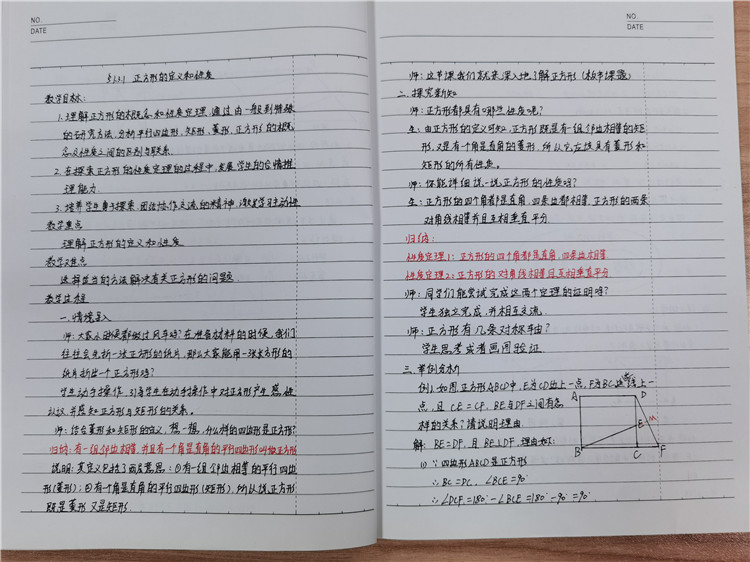 NO.
DATE
5.3.1 正方形的定义和性质
教学目标:
1. 理解正方形的概念和性质定理,通过由一般到特殊
的研究方法,分析平行四边形,矩形,菱形,正方形的概
念及性质之间的区别与联系.
2. 在探索正方形的性质定理的过程中,发展学生的合情推
理能力.
3. 培养学生勇于探索,团结协作交流的精神,激发学习主动性
教学重点
理解正方形的定义和性质
教学难点
选择适当的方法解决有关正方形的问题
教学过程
一.情境导入
师:大家小时候都做过风车吗?在准备材料的时候,我们
往往会先折一张正方形的纸片,那么大家能用一张长方形的
纸片折出一个正方形吗?
学生动手操作,引导学生在动手操作中对正方形产生感性
认识,并感知正方形与矩形的关系.
师:结合菱形和矩形的定义,想一想,什么样的四边形是正方形?
归纳:有一组邻边相等,并且有一个角是直角的平行四边形叫做正方形
说明:其定义包括了两层意思:①有一组邻边相等的平行四边
形(菱形);②有一个角是直角的平行四边形(矩形),所以说正方形
既是菱形又是矩形
NO.
DATE
师:这节课我们就来深入地了解正方形(板书课题)
二.探究新知
师:正方形都具有哪些性质呢?
生:由正方形的定义可知,正方形既是有一组邻边相等的矩
形,又是有一个角是直角的菱形,所以它应该具有菱形和
矩形的所有性质.
师:你能详细说一说正方形的性质吗?
生:正方形的四个角都是直角,四条边都相等,正方形的两条
对角线相等并且互相垂直平分
归纳:
性质定理1:正方形的四个角都是直角,四条边相等
性质定理2:正方形的对角线相等且互相垂直平分
师:同学们能尝试完成这两个定理的证明吗?
学生独立完成,并相互交流
师:正方形有几条对称轴?
学生思考或者画图验证
三.举例分析
例1,如图,正方形ABCD中,E为CD边上一点,F为BC延长线上一
点,且CE=CF.BE与DF之间有怎
样的关系?请说明理由.
解:BE=DF,且BE⊥DF,理由如下:
(1)∵四边形ABCD是正方形
∴BC=DC,∠BCE=90°
∴∠DCF=180°-∠BCE=180°-90°=90°
A D
E M
B C F